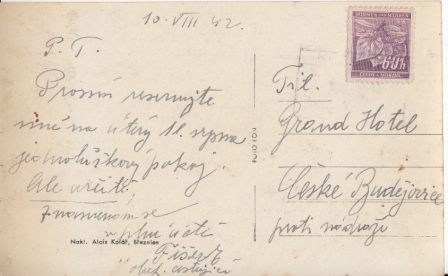 10. VIII 42.
P. T.
Prosím reservujte
mně na úterý 11. srpna
jednolůžkový pokoj
Ale určitě.
Znamenám se
v plné úctě
Nakl. Alois Kolář, Březnice
FOTOFON
BÖHMEN UND MÄHREN
60h
ČECHY A MORAVA
Tit.
Grand Hotel
České Budějovice
proti nádraží